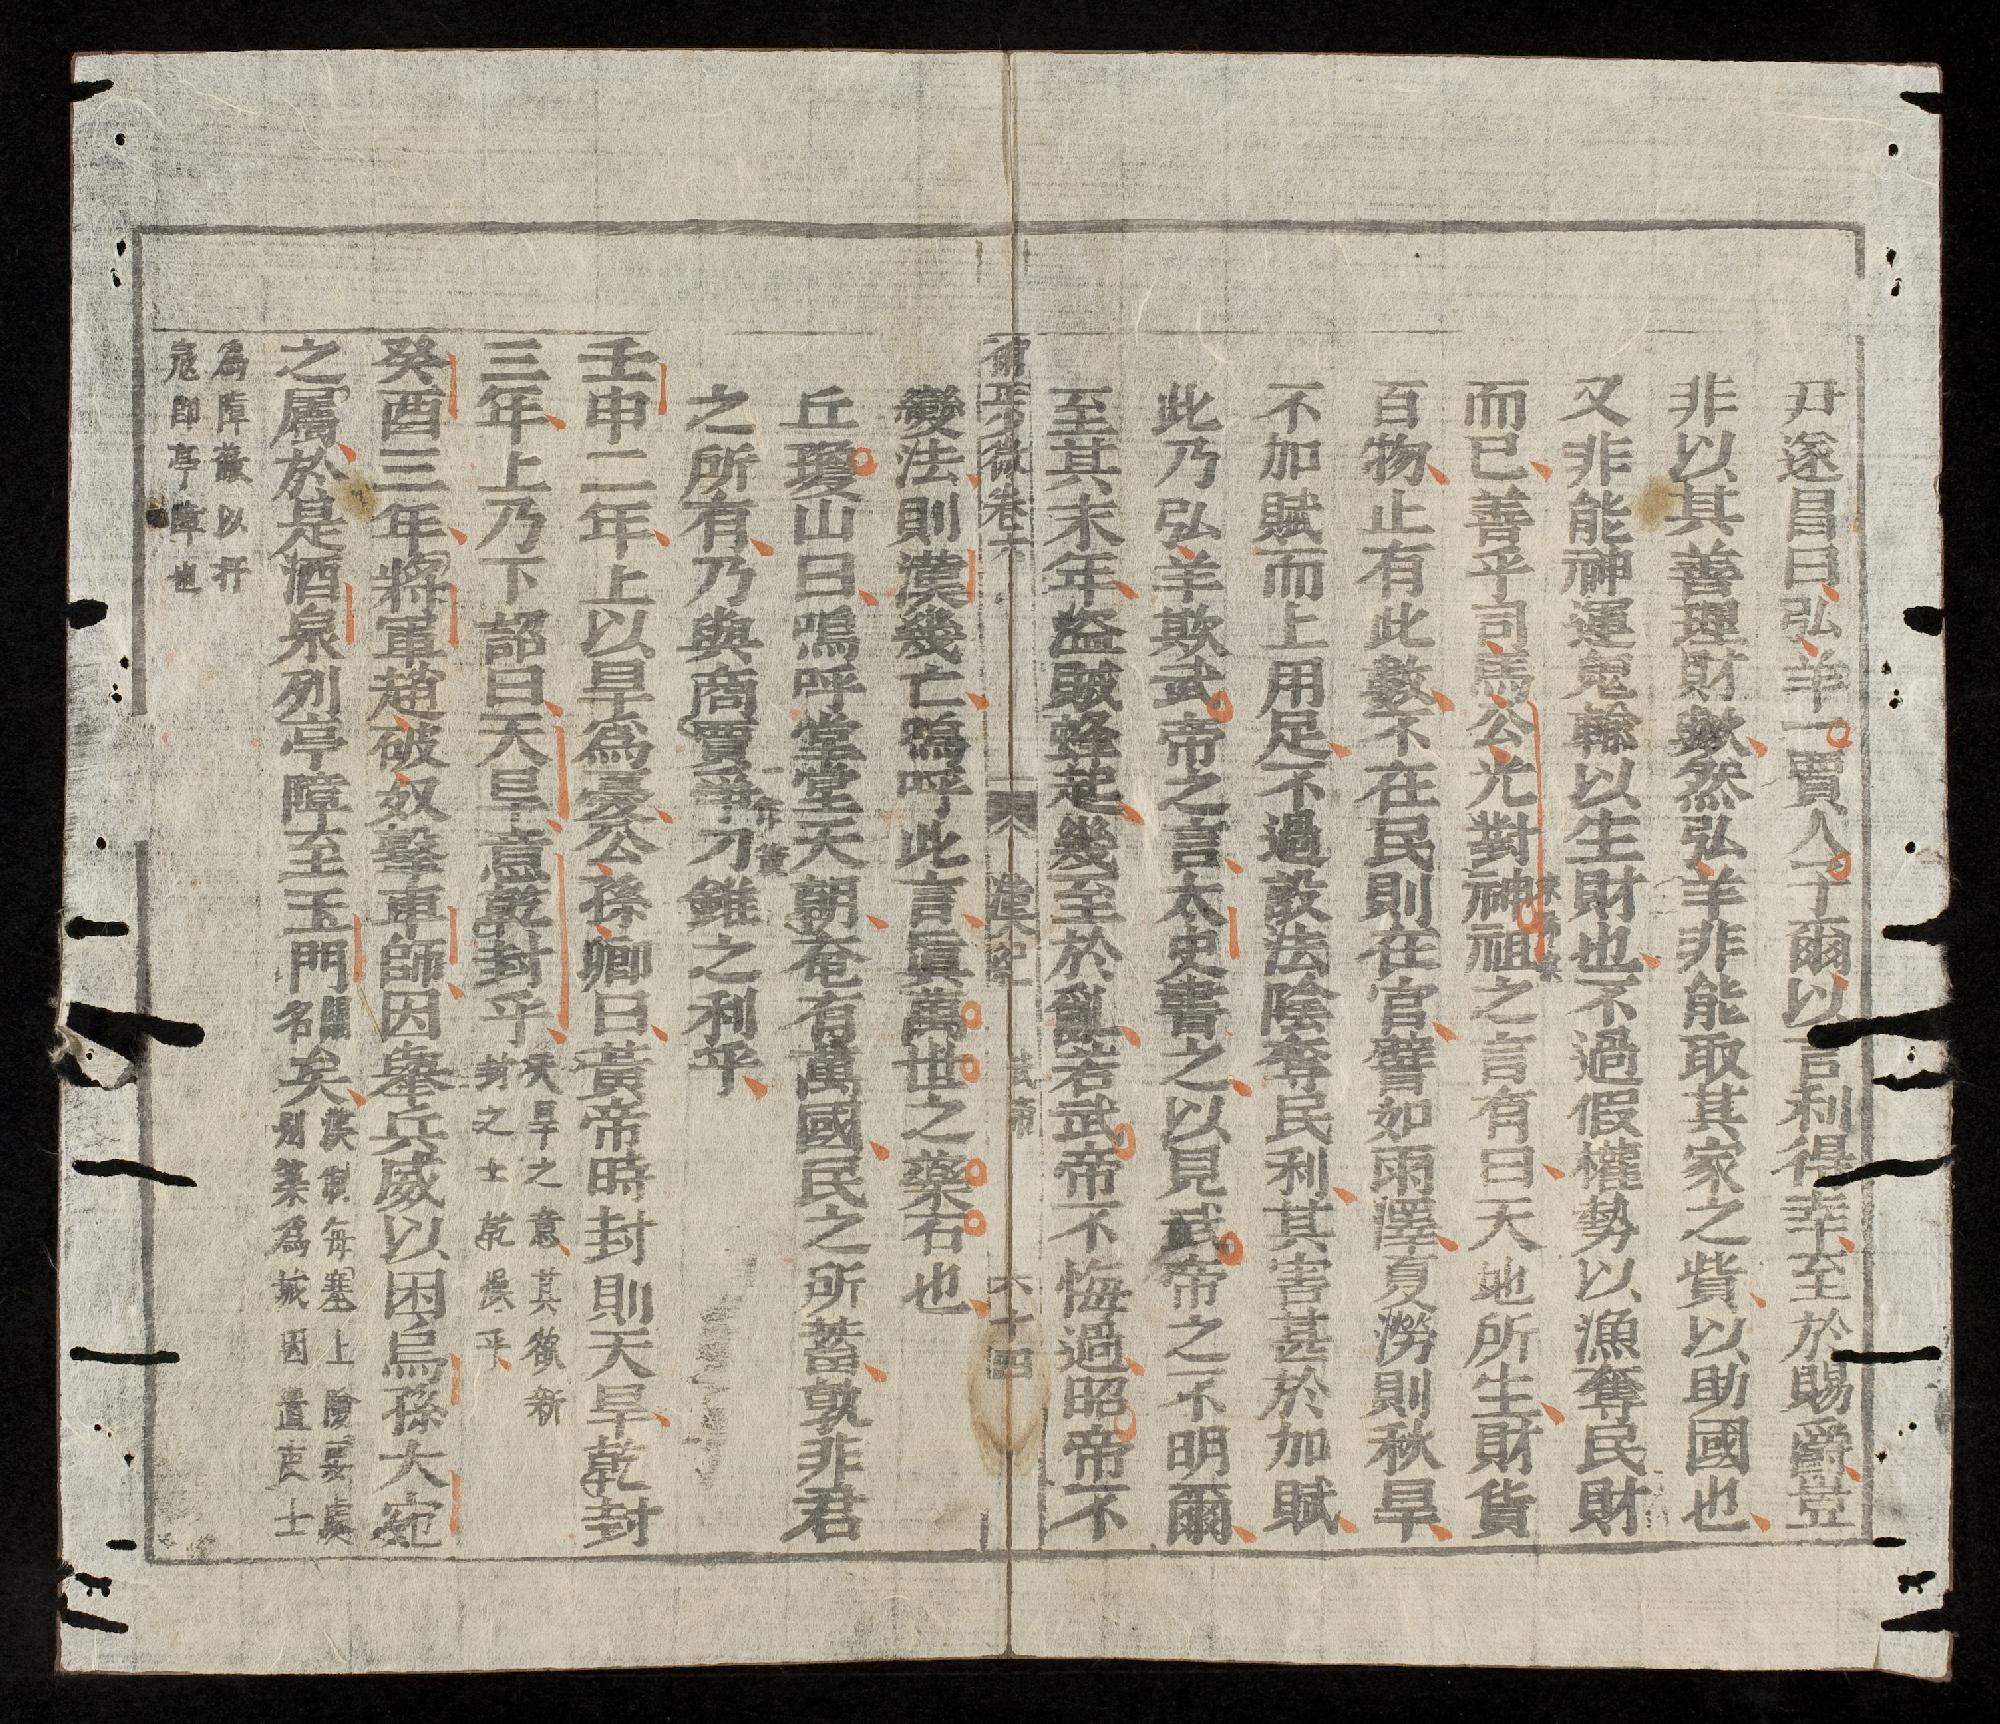 尹遂昌曰弘羊一賈人子爾以言利得幸至於賜爵豈
非以其善理財歟然弘羊非能取其家之貲以助國也
又非能神運鬼輸以生財也不過假權勢以漁奪民財
而已善乎司馬公光對神祖之言有曰天地所生財貨
百物止有此數不在民則在官譬如雨澤夏澇則秋旱
不加賦而上用足不過設法陰奪民利其害甚於加賦
此乃弘羊欺武帝之言太史書之以見武帝之不明爾
至其末年盜賊蜂起幾至於亂若武帝不悔過昭帝不
卷六 漢紀 武帝 六十四
變法則漢幾亡嗚呼此言眞萬世之藥石也
丘瓊山曰嗚呼堂堂天朝奄有萬國民之所蓄孰非君
之所有乃與商賈爭刀錐之利乎
壬申二年上以旱爲憂公孫卿曰黃帝時封則天旱乾封
三年上乃下詔曰天旱意乾封乎
天旱之意其欲新
封之土乾燥乎
癸酉三年將軍趙破奴擊車師因擧兵威以困烏孫大宛
之屬於是酒泉列亭障至玉門
關
名
矣
漢制每塞上險要處
別築爲城因置吏士
爲障蔽以扞
寇卽亭障也